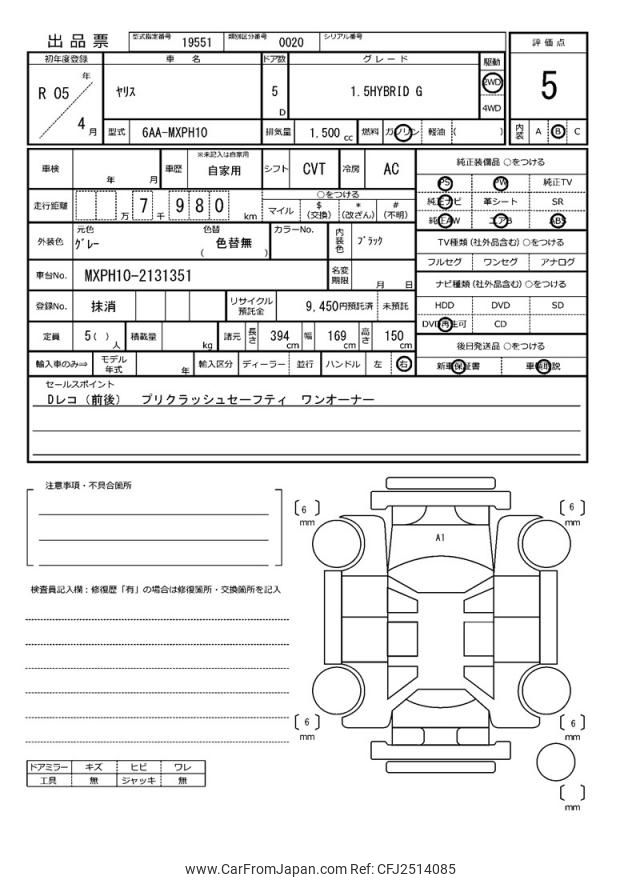 出品票 型式指定番号 19551 類別区分番号 0020 シリアル番号
初年度登録 車 名 ドア数 グレード 駆動 評価点
R 05 年 4 月 ヤリス 5 D 1.5HYBRID G 2WD 4WD 5
型式 6AA-MXPH10 排気量 1.500 cc 燃料 ガソリン 軽油 ( ) 内装 A B C
車検 年 月 車歴 ※未記入は自家用 自家用 シフト CVT 冷房 AC
走行距離 万 7 千 9 8 0 km ○をつける
マイル $ (交換) * (改ざん) # (不明)
外装色 元色 グレー 色替 色替無 ( ) カラーNo. 内装色 ブラック
車台No. MXPH10-2131351 名変期限 月 日
登録No. 抹消 リサイクル預託金 9,450円預託済 未預託
定員 5( ) 人 積載量 kg 諸元 長さ 394 cm 幅 169 cm 高さ 150 cm
輸入車のみ⇒ モデル年式 年 輸入区分 ディーラー 並行 ハンドル 左 右
純正装備品 ○をつける
PS PW 純正TV
純正ナビ 革シート SR
純正AW エアB ABS
TV種類 (社外品含む) ○をつける
フルセグ ワンセグ アナログ
ナビ種類 (社外品含む) ○をつける
HDD DVD SD
DVD再生可 CD
後日発送品 ○をつける
新車保証書 車輌取説
セールスポイント
Dレコ（前後） プリクラッシュセーフティ ワンオーナー
注意事項・不具合箇所
検査員記入欄：修復歴「有」の場合は修復箇所・交換箇所を記入
ドアミラー キズ ヒビ ワレ
工具 無 ジャッキ 無
6 mm
6 mm
A1
6 mm
6 mm
mm
www.CarFromJapan.com Ref: CFJ2514085